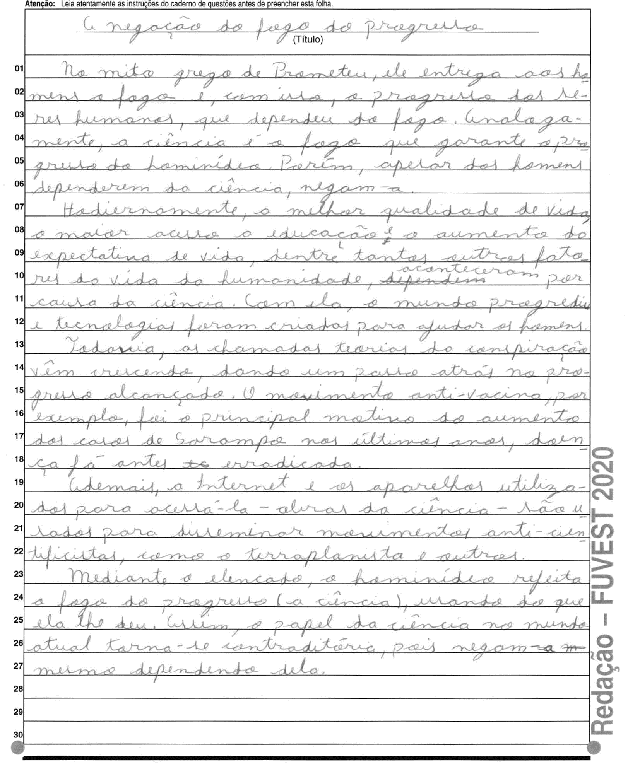 Atenção: Leia atentamente as instruções do caderno de questões antes de preencher esta folha.
A negação do fogo do progresso
(Título)
01 No mito grego de Prometeu, ele entrega aos ho
02 mens o fogo e, com isso, o progresso dos se-
03 res humanos, que dependeu do fogo. Analoga-
04 mente, a ciência é o fogo que garante o pro
05 gresso do hominídeo. Porém, apesar dos homens
06 dependerem da ciência, negam-a.
07 Hodiernamente, a melhor qualidade de vida,
08 o maior acesso a educação e o aumento da
09 expectativa de vida, dentre tantos outros fato-
10 res da vida da humanidade, dependem aconteceram por
11 causa da ciência. Com ela, o mundo progrediu
12 e tecnologias foram criadas para ajudar os homens.
13 Todavia, as chamadas teorias da conspiração
14 vêm crescendo, dando um passo atrás no pro-
15 gresso alcançado. O movimento anti-vacina, por
16 exemplo, foi o principal motivo do aumento
17 dos casos de Sarampo nos últimos anos, doen
18 ça já antes erradicada.
19 Ademais, a Internet e os aparelhos utiliza-
20 dos para acessá-la - obras da ciência - são u
21 sados para disseminar movimentos anti-cien
22 tificistas, como o terraplanista e outros.
23 Mediante o elencado, o hominídeo rejeita
24 o fogo do progresso (a ciência), usando do que
25 ela lhe deu. Assim, o papel da ciência no mundo
26 atual torna-se contraditório, pois negam-a
27 mesmo dependendo dela.
28
29
30
Redação – FUVEST 2020